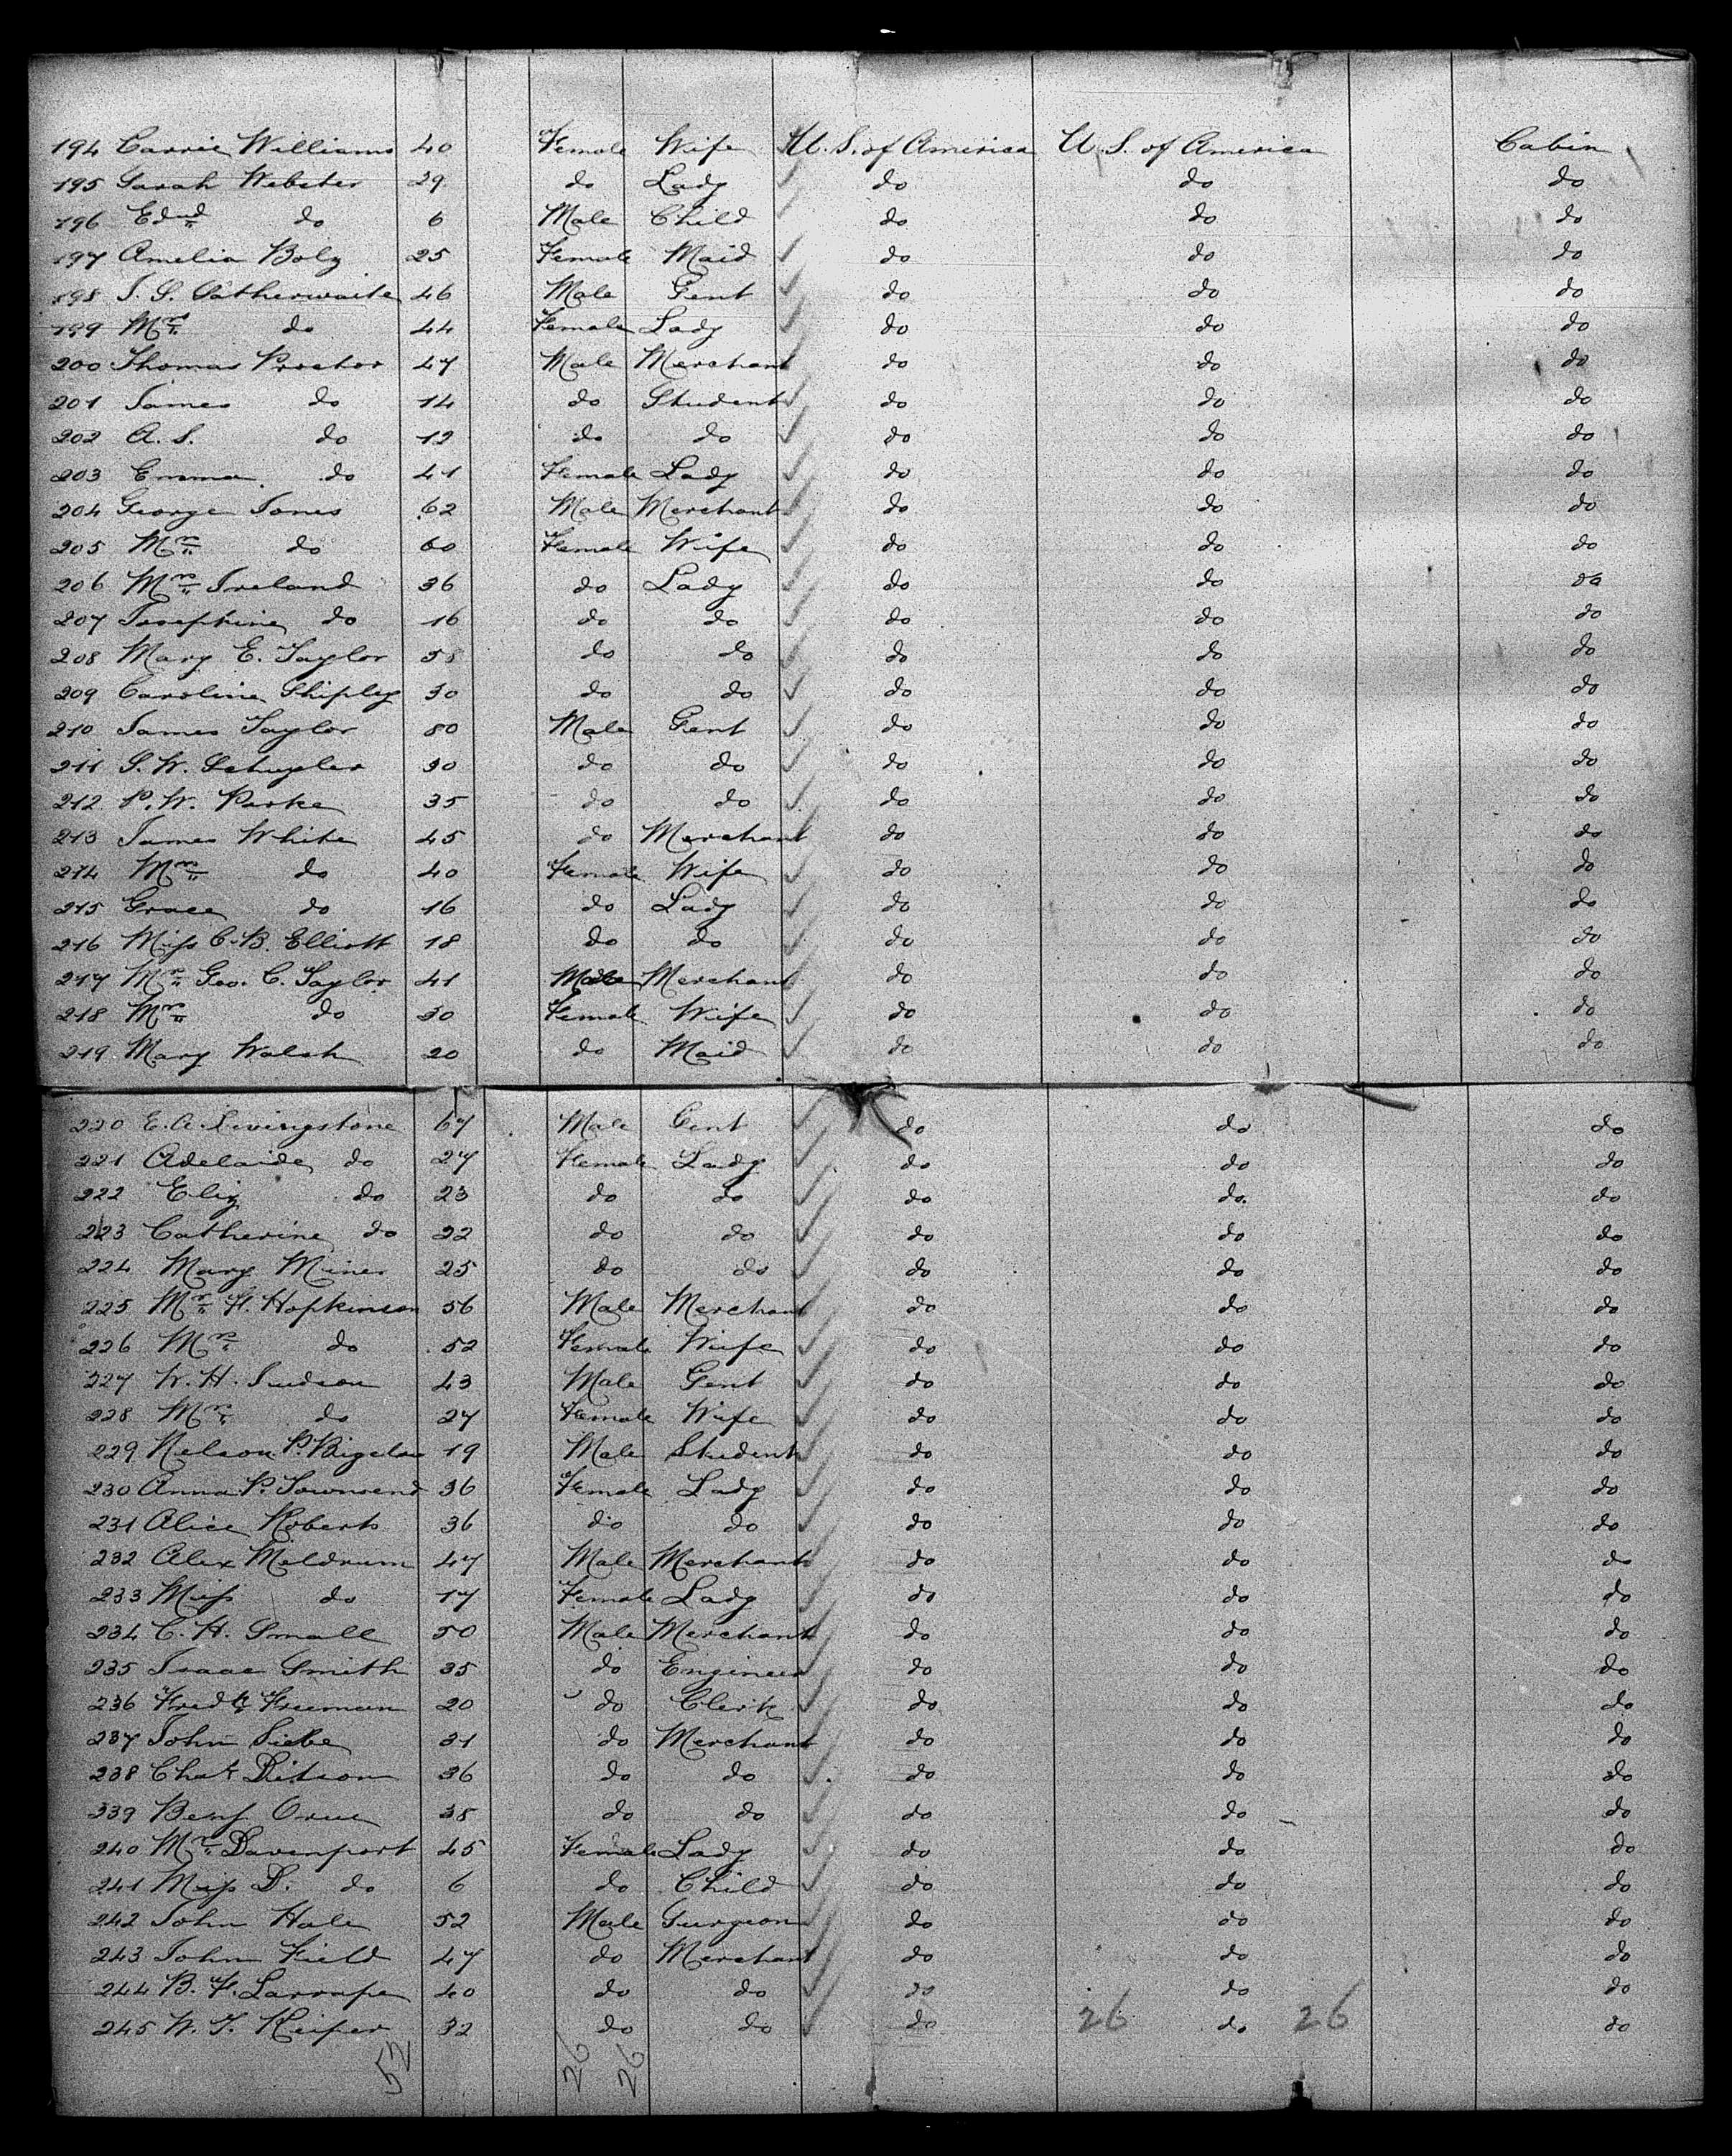 194 Carrie Williams 40 Female Wife U.S. of America U.S. of America Cabin
195 Sarah Webster 29 do Lady do do do
196 Edwd do 6 Male Child do do do
197 Amelia Bolz 25 Female Maid do do do
198 J. S. Satherwaite 46 Male Gent do do do
199 Mrs do 44 Female Lady do do do
200 Thomas Proctor 47 Male Merchant do do do
201 James do 14 do Student do do do
202 A. S. do 12 do do do do do
203 Emma do 41 Female Lady do do do
204 George Jones 62 Male Merchant do do do
205 Mrs do 60 Female Wife do do do
206 Mrs Ireland 36 do Lady do do do
207 Josephine do 16 do do do do do
208 Mary E. Taylor 58 do do do do do
209 Caroline Shipley 30 do do do do do
210 James Taylor 80 Male Gent do do do
211 S. W. Schuyler 30 do do do do do
212 P. W. Parke 35 do do do do do
213 James White 45 do Merchant do do do
214 Mrs do 40 Female Wife do do do
215 Grace do 16 do Lady do do do
216 Miss C. B. Elliott 18 do do do do do
217 Mr Geo. C. Taylor 41 Male Merchant do do do
218 Mrs do 30 Female Wife do do do
219 Mary Walsh 20 do Maid do do do
220 E. A. Livingstone 67 Male Gent do do do
221 Adelaide do 27 Female Lady do do do
222 Eliz do 23 do do do do do
223 Catherine do 22 do do do do do
224 Mary Miner 25 do do do do do
225 Mr F. Hopkinson 56 Male Merchant do do do
226 Mrs do 52 Female Wife do do do
227 W. H. Judson 43 Male Gent do do do
228 Mrs do 27 Female Wife do do do
229 Nelson P. Bigelow 19 Male Student do do do
230 Anna P. Townsend 36 Female Lady do do do
231 Alice Roberts 36 do do do do do
232 Alex Meldrum 47 Male Merchant do do do
233 Miss do 17 Female Lady do do do
234 C. H. Small 50 Male Merchant do do do
235 Isaac Smith 35 do Engineer do do do
236 Fredk Freeman 20 do Clerk do do do
237 John Siebe 31 do Merchant do do do
238 Chas Ditson 36 do do do do do
239 Benj 38 do do do do do
240 Mrs Davenport 45 Female Lady do do do
241 Miss D. do 6 do Child do do do
242 John Hale 52 Male Surgeon do do do
243 John Field 47 do Merchant do do do
244 B. F. 40 do do do do do
245 W. J. Keiper 32 do do do 26 do 26 do
52 26 26